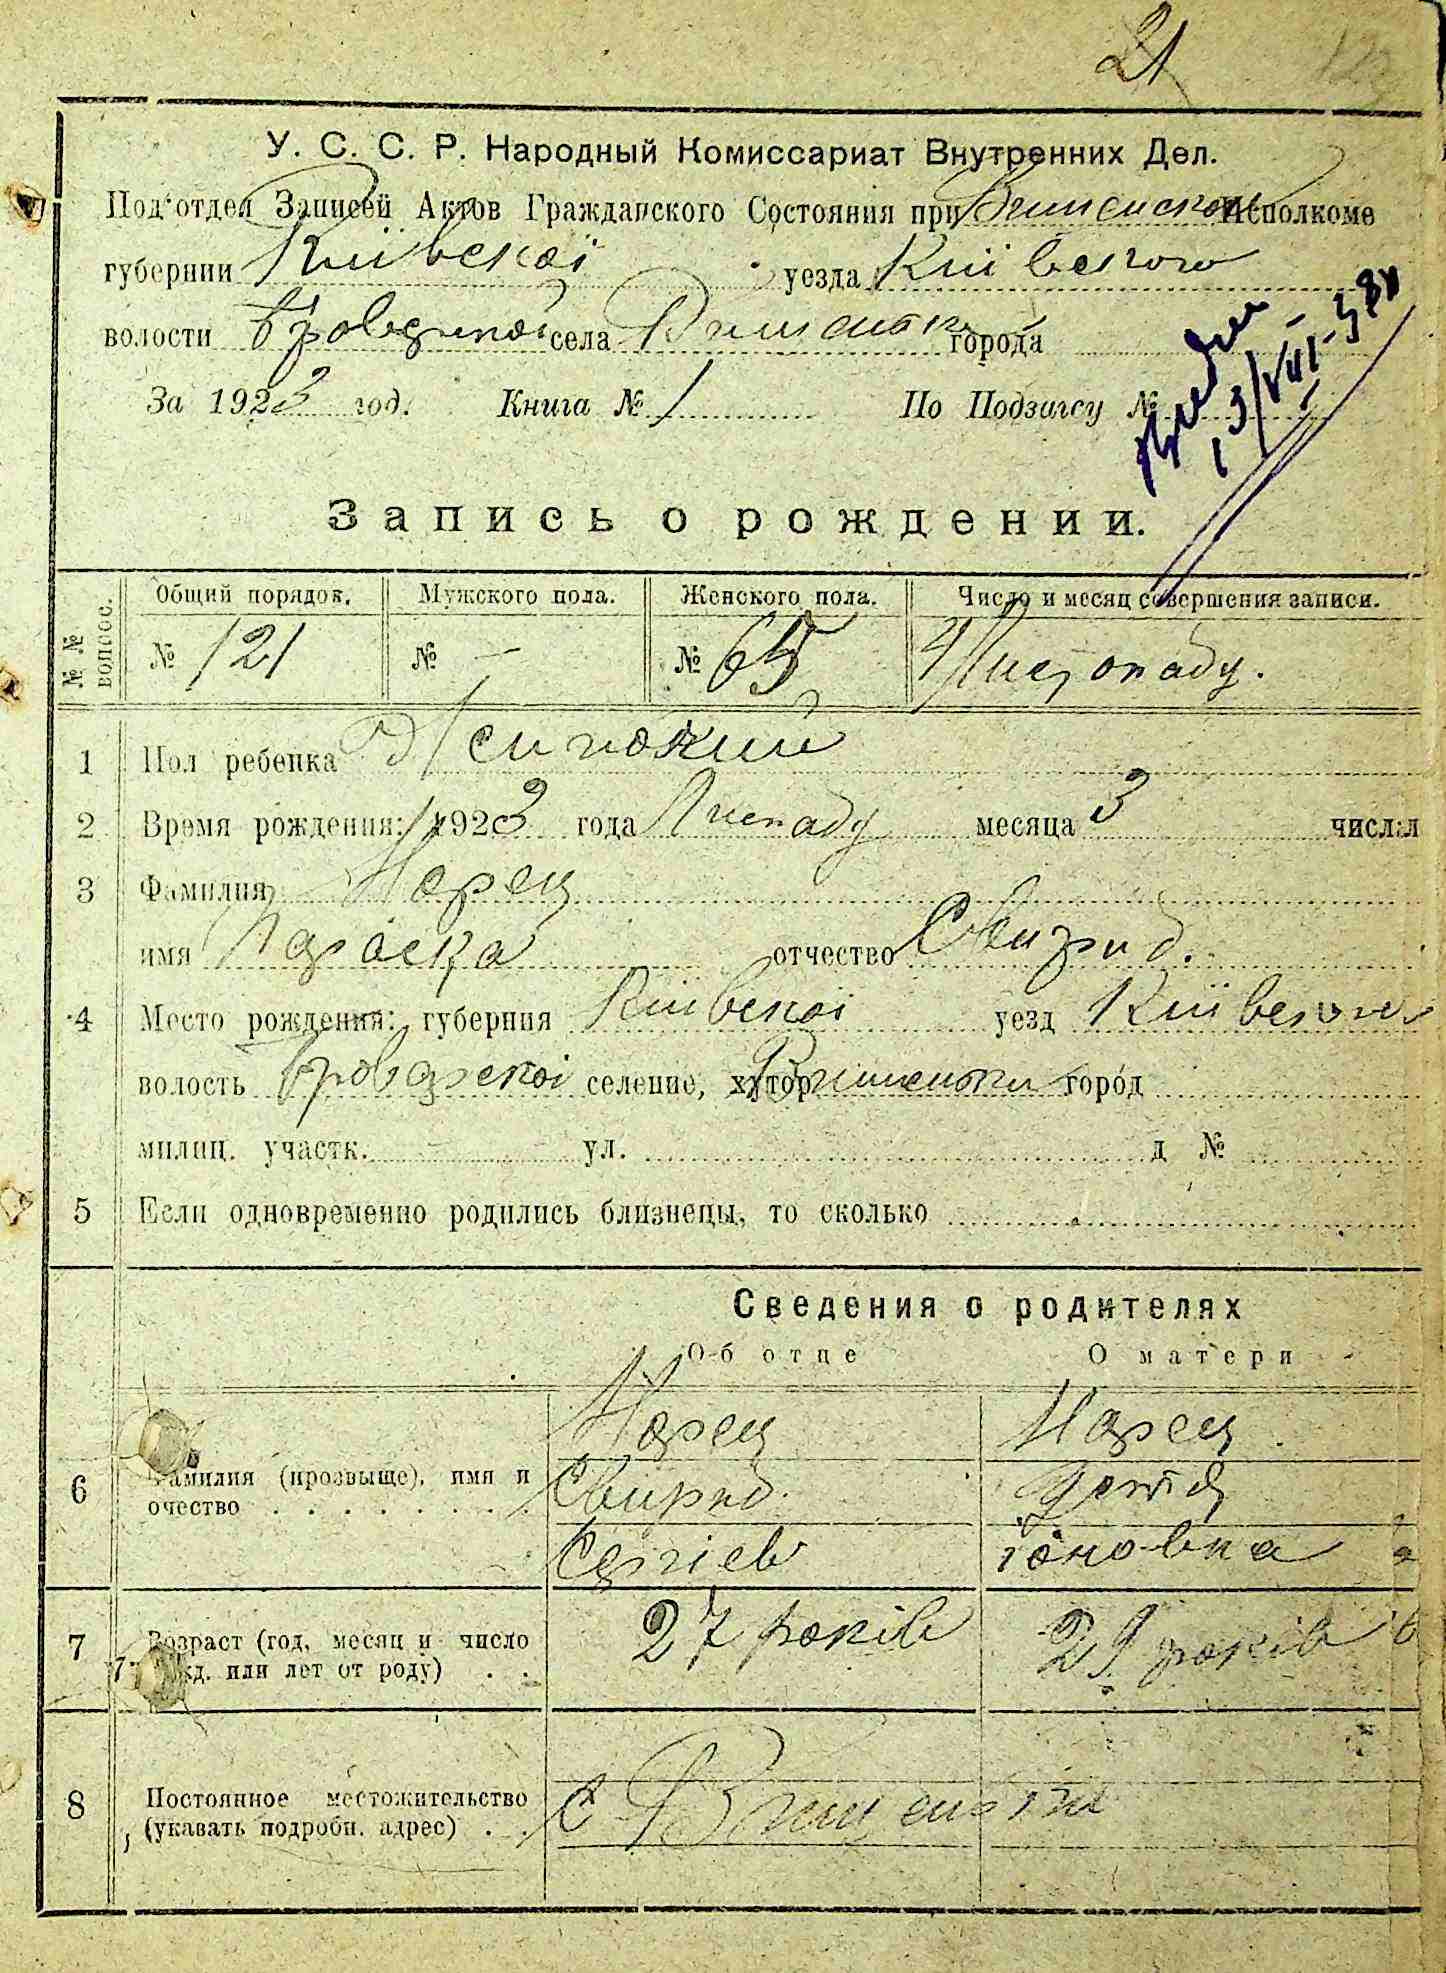 21
У. С. С. Р. Народный Комиссариат Внутренних Дел.
Под'отдел Записей Актов Гражданского Состояния при Вишенском Исполкоме
губернии Київскої уезда Київського
волости Броварської села Вишеньки города
За 1923 год. Книга № 1 По Подзагсу №
13/VIII-38
Запись о рождении.
№№ вопрос. Общий порядок. Мужского пола. Женского пола. Число и месяц совершения записи.
№ 121 № - № 65 4/Листопаду.
1 Пол ребенка Жіночий
2 Время рождения: 1923 года Листопаду месяца 3 числа
3 Фамилия Марец
имя Параска отчество Свирид.
4 Место рождения: губерния Київскої уезд Київського
волость Броварскої селение, хутор Вишеньки город
милиц. участк. ул. д №
5 Если одновременно родились близнецы, то сколько
Сведения о родителях
Об отце О матери
Марец Марец
6 Фамилия (прозвыще), имя и очество Свирид.
Сергіев
7 Возраст (год, месяц и число рожд. или лет от роду) 27 років 29 років
8 Постоянное местожительство (указать подробн. адрес) с Вишеньки